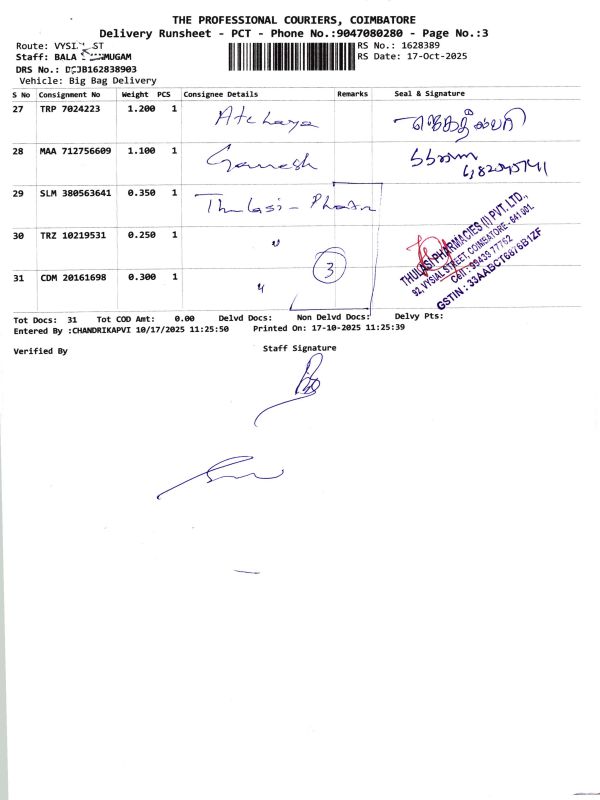 THE PROFESSIONAL COURIERS, COIMBATORE
Delivery Runsheet - PCT - Phone No.:9047080280 - Page No.:3
Route: ST
RS No.: 1628389
Staff: BALA
RS Date: 17-Oct-2025
DRS No.:
Vehicle: Big Bag Delivery
S No Consignment No Weight PCS Consignee Details Remarks Seal & Signature
27 TRP 7024223 1.200 1 Atchaya
28 MAA 712756609 1.100 1 Ganesh
29 SLM 380563641 0.350 1 Thulasi - Pharm
30 TRZ 10219531 0.250 1 "
31 CDM 20161698 0.300 1 "
3
THULASI PHARMACIES (I) PVT. LTD.,
92, VYSIAL STREET, COIMBATORE - 641 001.
Cell : 99439 77762
GSTIN : 33AABCT6876B1ZF
Tot Docs: 31 Tot COD Amt: 0.00 Delvd Docs: Non Delvd Docs: Delvy Pts:
Entered By :CHANDRIKAPVI 10/17/2025 11:25:50 Printed On: 17-10-2025 11:25:39
Verified By
Staff Signature